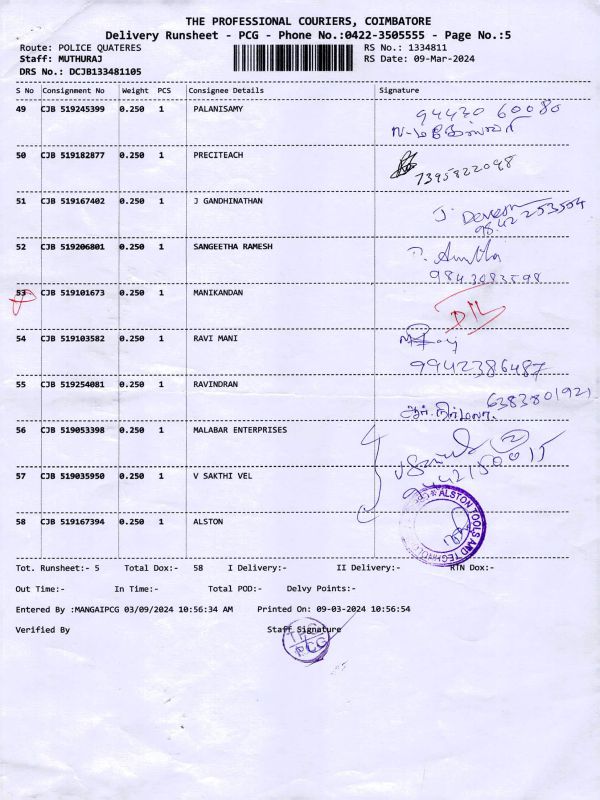 THE PROFESSIONAL COURIERS, COIMBATORE
Delivery Runsheet - PCG - Phone No.:0422-3505555 - Page No.:5
Route: POLICE QUATERES RS No.: 1334811
Staff: MUTHURAJ RS Date: 09-Mar-2024
DRS No.: DCJB133481105
S No Consignment No Weight PCS Consignee Details Signature
49 CJB 519245399 0.250 1 PALANISAMY 94430 60080
50 CJB 519182877 0.250 1 PRECITEACH 7395822098
51 CJB 519167402 0.250 1 J GANDHINATHAN J.
9842253504
52 CJB 519206801 0.250 1 SANGEETHA RAMESH
9843083598
53 CJB 519101673 0.250 1 MANIKANDAN D/L
54 CJB 519103582 0.250 1 RAVI MANI
9942386487
55 CJB 519254081 0.250 1 RAVINDRAN 6383801921
ஆர். நிர்மலா.
56 CJB 519053398 0.250 1 MALABAR ENTERPRISES
57 CJB 519035950 0.250 1 V SAKTHI VEL 9442150015
58 CJB 519167394 0.250 1 ALSTON
ALSTON TOOLS AND
Tot. Runsheet:- 5 Total Dox:- 58 I Delivery:- II Delivery:- RTN Dox:-
Out Time:- In Time:- Total POD:- Delvy Points:-
Entered By :MANGAIPCG 03/09/2024 10:56:34 AM Printed On: 09-03-2024 10:56:54
Verified By Staff Signature
PCG